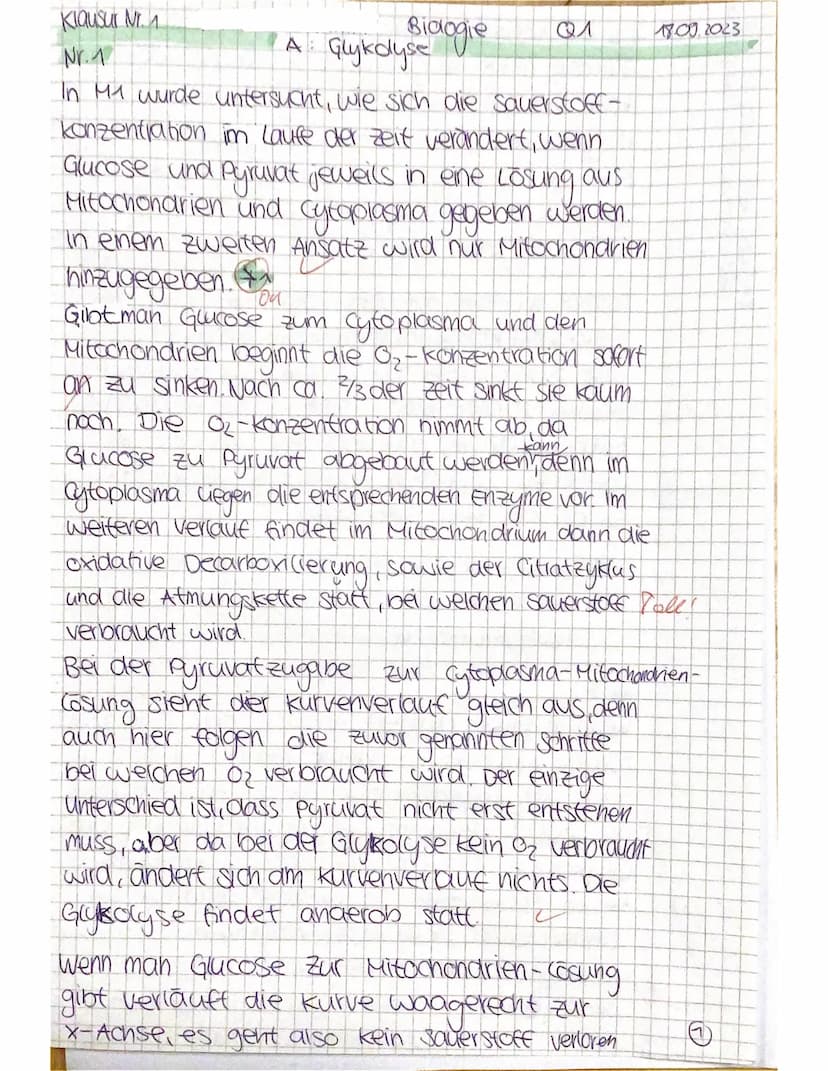 Klausur Nr. 1 Biologie Q1 18.09.2023
Nr. 1 A: Glykolyse
In M1 wurde untersucht, wie sich die Sauerstoff-
konzentration im Laufe der Zeit verändert, wenn
Glucose und Pyruvat jeweils in eine Lösung aus
Mitochondrien und Cytoplasma gegeben werden.
In einem zweiten Ansatz wird nur Mitochondrien
hinzugegeben. *1
Gibt man Glucose zum Cytoplasma und den
Mitochondrien beginnt die O₂-Konzentration sofort
an zu sinken. Nach ca. 2/3 der Zeit sinkt sie kaum
noch. Die O₂-Konzentration nimmt ab, da
Glucose zu Pyruvat abgebaut werden kann, denn im
Cytoplasma liegen die entsprechenden Enzyme vor. Im
weiteren Verlauf findet im Mitochondrium dann die
oxidative Decarboxilierung, sowie der Citratzyklus
und die Atmungskette statt, bei welchen Sauerstoff Toll!
verbraucht wird.
Bei der Pyruvatzugabe zur Cytoplasma-Mitochondrien-
Lösung sieht der Kurvenverlauf gleich aus, denn
auch hier folgen die zuvor genannten Schritte
bei welchen O₂ verbraucht wird. Der einzige
Unterschied ist, dass Pyruvat nicht erst entstehen
muss, aber da bei der Glykolyse kein O₂ verbraucht
wird, ändert sich am Kurvenverlauf nichts. Die
Glykolyse findet anaerob statt.
Wenn man Glucose zur Mitochondrien-Lösung
gibt verläuft die Kurve waagerecht zur
x-Achse, es geht also kein Sauerstoff verloren
1